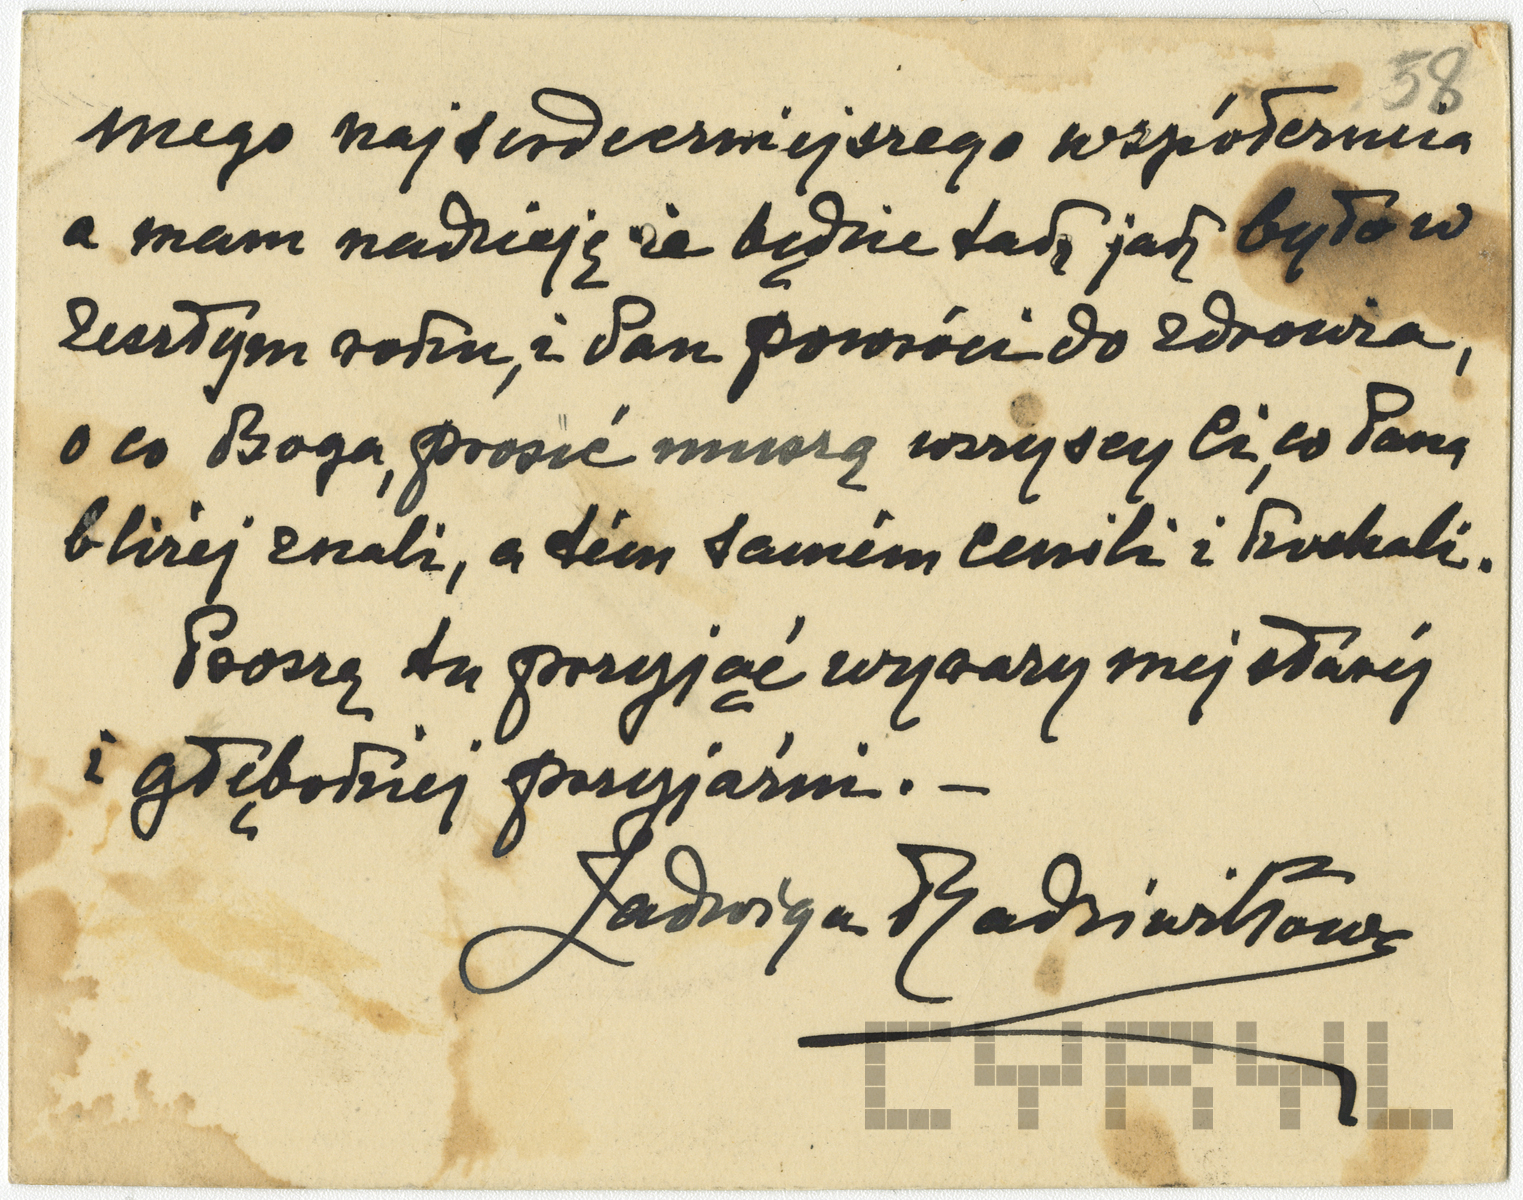 58
mego najserdeczniejszego współczucia
a mam nadzieję że będzie tak, jak było w
zeszłym roku, i Pan powróci do zdrowia,
o co Boga, prosić muszą wszyscy Ci, co Pana
bliżej znali, a tém samém cenili i kochali.
Proszę tu przyjąć wyrazy mej stałéj
i głębokiej przyjaźni. —
Jadwiga Radziwiłłowa
CYRYL